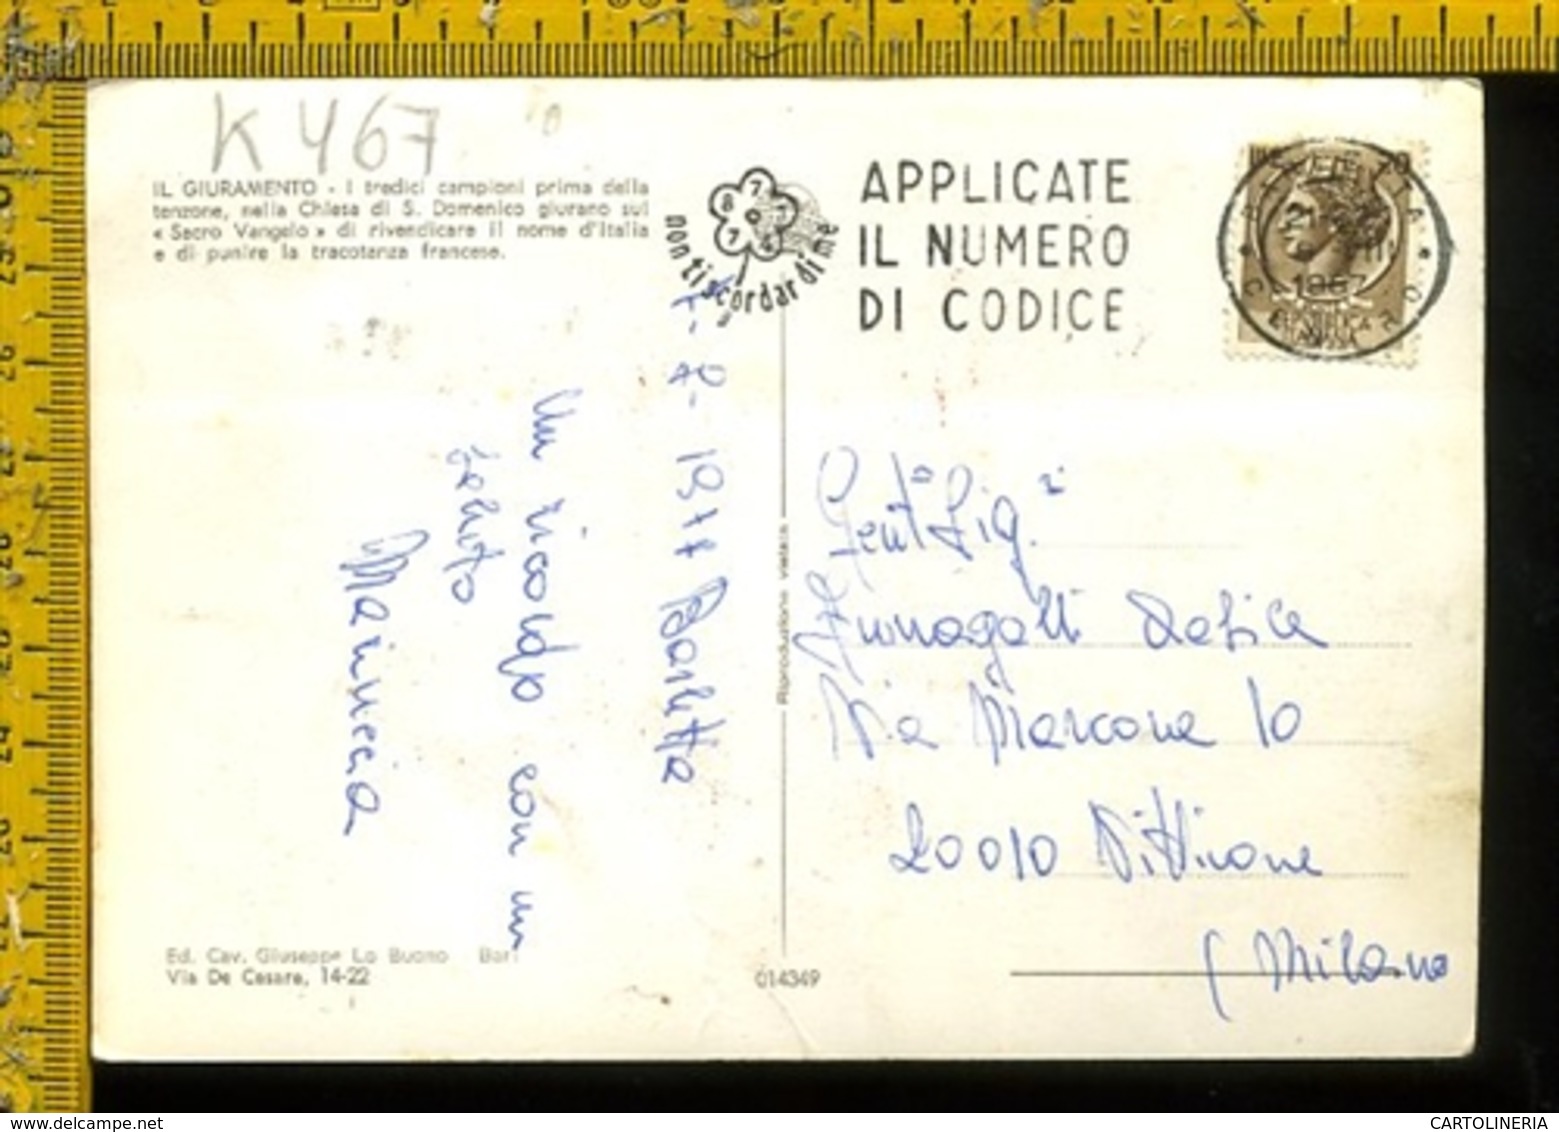 K 467
IL GIURAMENTO - I tredici campioni prima della
tenzone, nella Chiesa di S. Domenico giurano sul
« Sacro Vangelo » di rivendicare il nome d'Italia
e di punire la tracotanza francese.
non ti scordar di me
APPLICATE
IL NUMERO
DI CODICE
1967
Barletta
Un ricordo con un
saluto
Gent. Sig.
Fumagalli
Via Marcona 10
20010 Vittuone
( Milano
Riproduzione vietata
Ed. Cav. Giuseppe Lo Buono Bari
Via De Cesare, 14-22
014349
www.delcampe.net
CARTOLINERIA